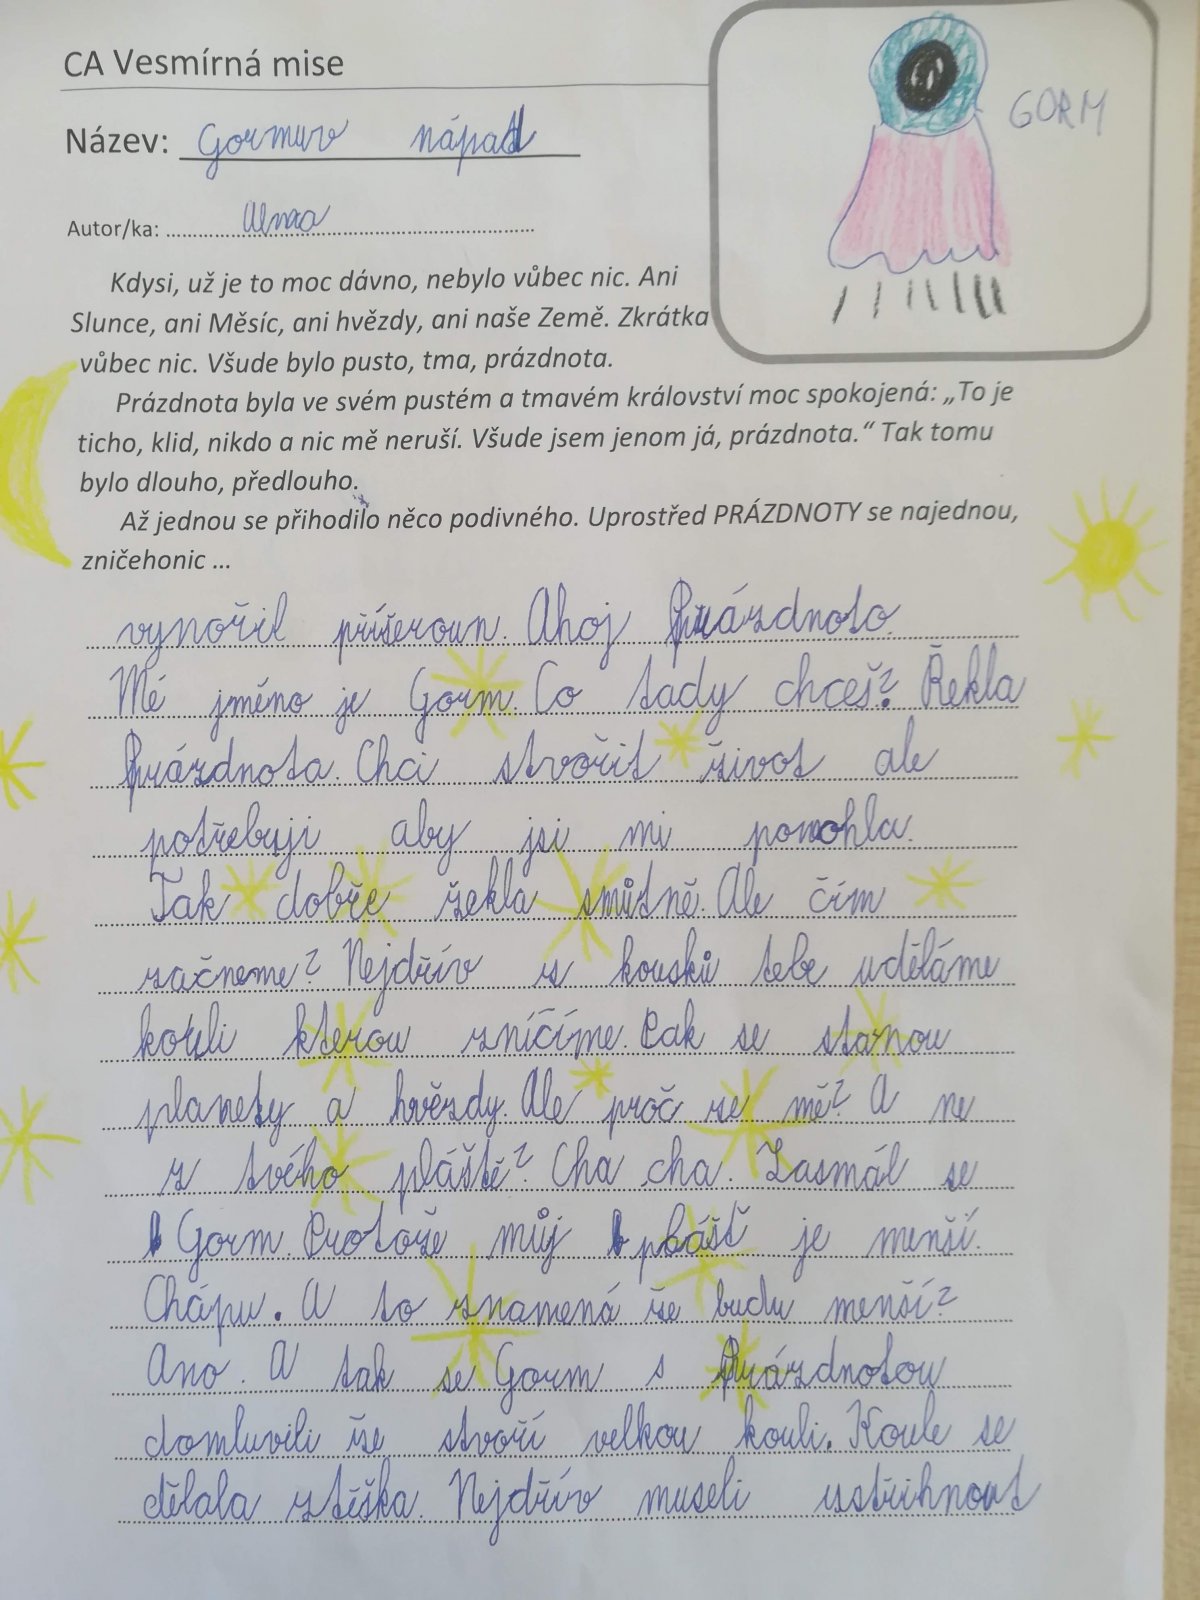 CA Vesmírná mise
GORM
Název: Gormův nápad
Autor/ka: Alma
Kdysi, už je to moc dávno, nebylo vůbec nic. Ani
Slunce, ani Měsíc, ani hvězdy, ani naše Země. Zkrátka
vůbec nic. Všude bylo pusto, tma, prázdnota.
Prázdnota byla ve svém pustém a tmavém království moc spokojená: „To je
ticho, klid, nikdo a nic mě neruší. Všude jsem jenom já, prázdnota.“ Tak tomu
bylo dlouho, předlouho.
Až jednou se přihodilo něco podivného. Uprostřed PRÁZDNOTY se najednou,
zničehonic ...
vynořil příšeroun. Ahoj Prázdnoto.
Mé jméno je Gorm. Co tady chceš? Řekla
Prázdnota. Chci stvořit život ale
potřebuji aby jsi mi pomohla.
Tak dobře řekla smůtně. Ale čím
začneme? Nejdřív z kousků tebe uděláme
kouli kterou zničíme. Pak se stanou
planety a hvězdy. Ale proč ze mě? A ne
z tvého pláště? Cha cha. Zasmál se
Gorm. Protože můj plášť je menší.
Chápu. A to znamená že budu menší?
Ano. A tak se Gorm s Prázdnotou
domluvili že stvoří velkou kouli. Koule se
dělala ztěška. Nejdřív museli ustřihnout